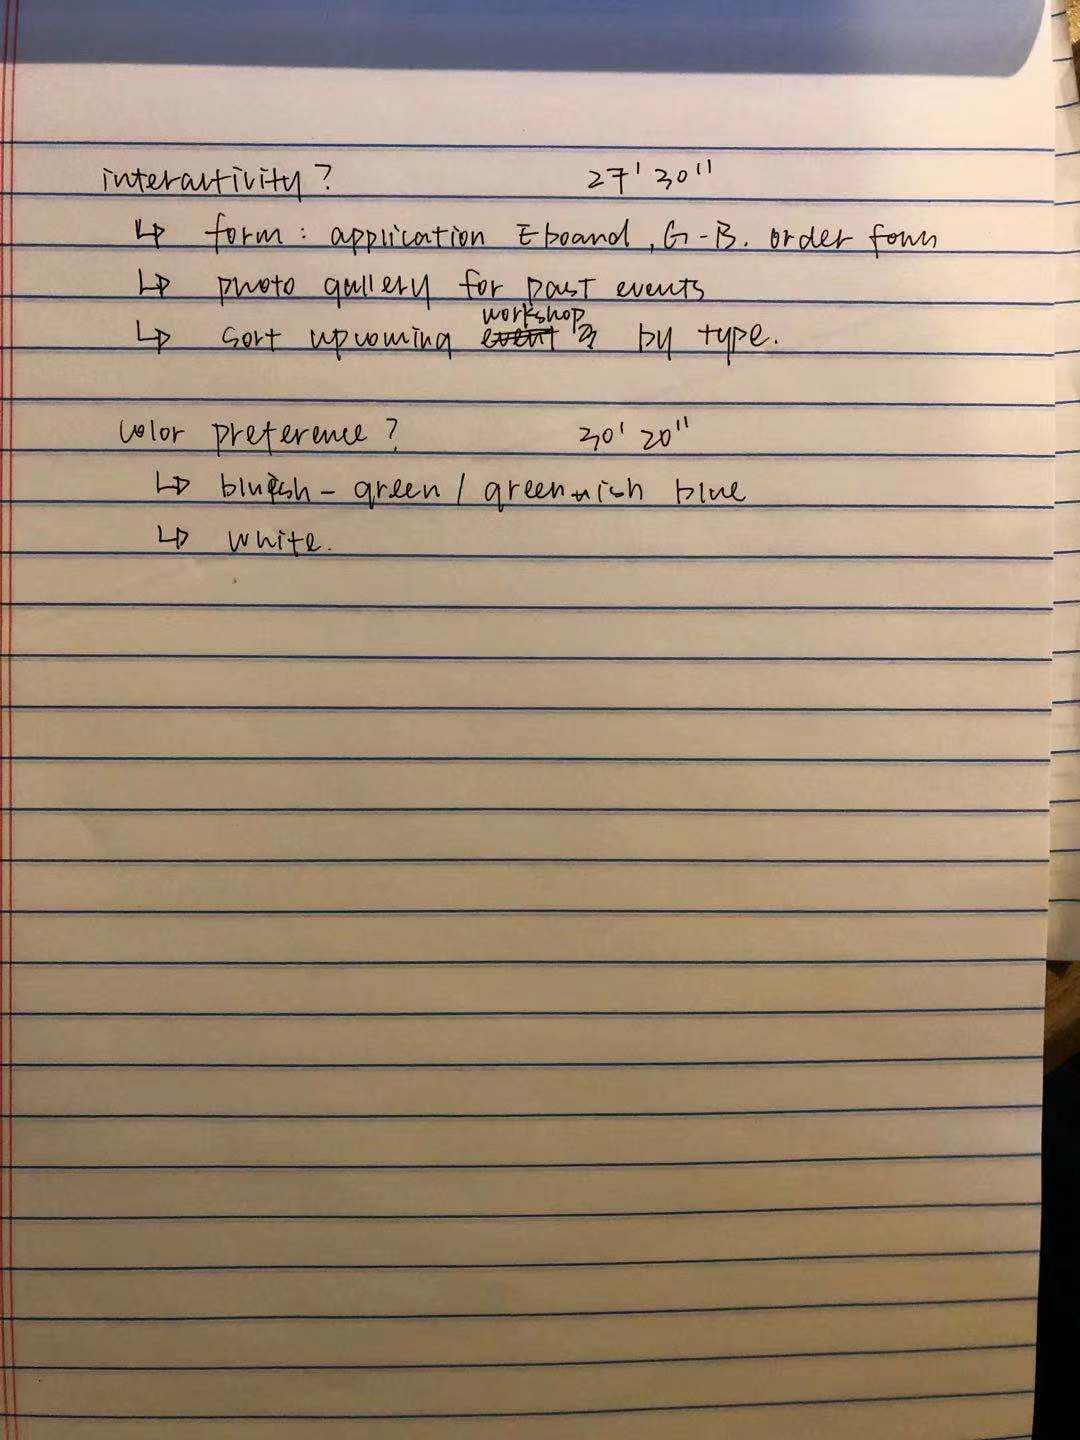 interactivity? 27' 30''
↳ form: application Eboard, G-B. order form
↳ photo gallery for past events
↳ sort upcoming workshops by type.
color preference? 30' 20''
↳ bluish-green / greenish blue
↳ white.